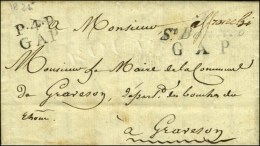 à Monsieur affranchi
P.4.P.
GAP
GAP
Monsieur le Maire de la Commune
de Graveson, départ. des bouches du
Rhone.
à Graveson